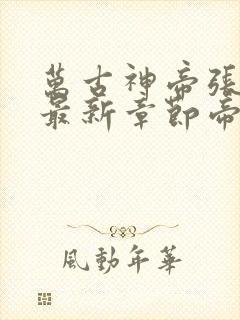 萬古神帝張
最新章節帝
風動年華